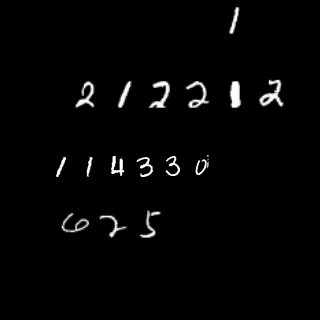 1
212212
114330
625